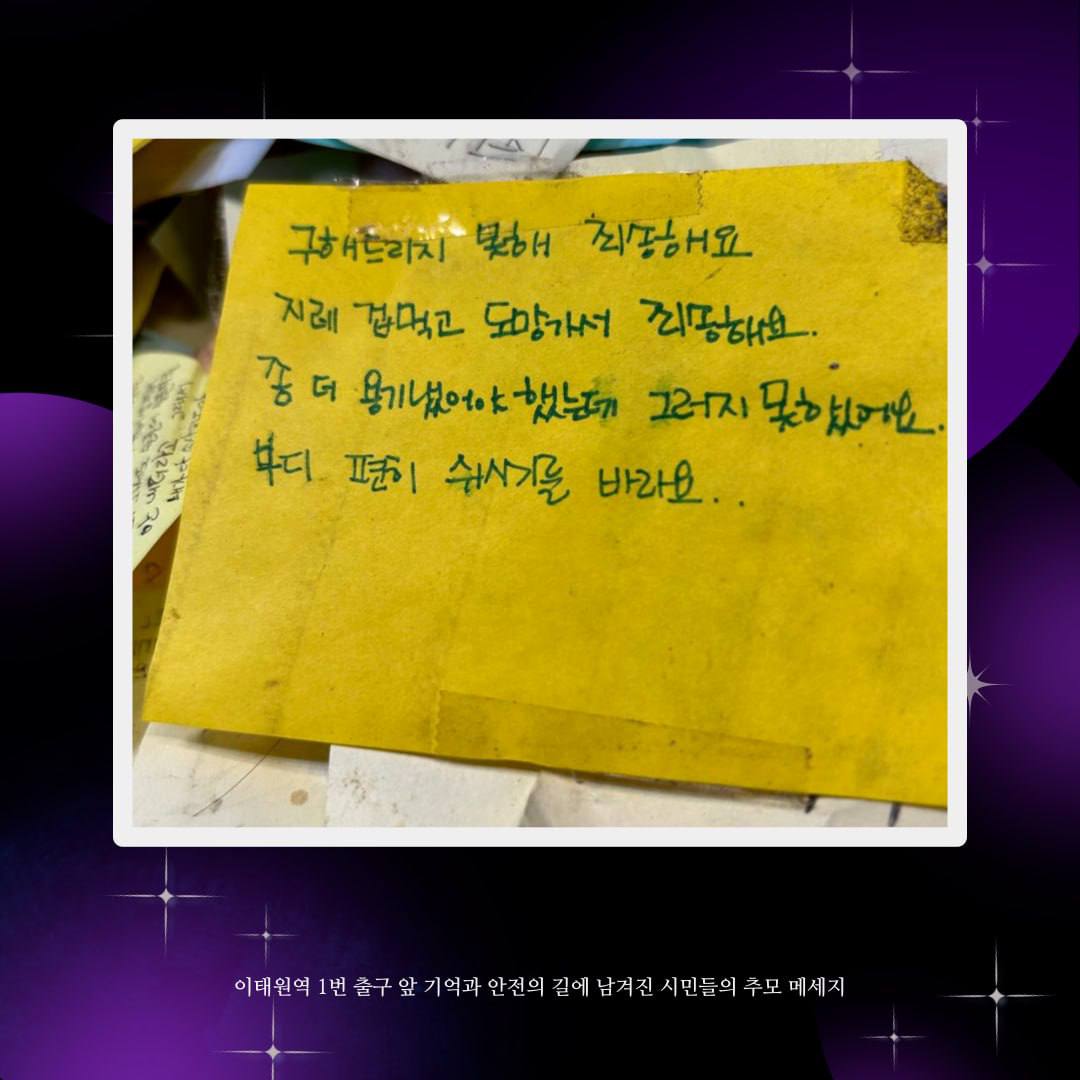 구해드리지 못해 죄송해요
지레 겁먹고 도망가서 죄송해요.
좀 더 용기냈어야 했는데 그러지 못하였어요.
부디 편히 쉬시기를 바라요..
이태원역 1번 출구 앞 기억과 안전의 길에 남겨진 시민들의 추모 메세지